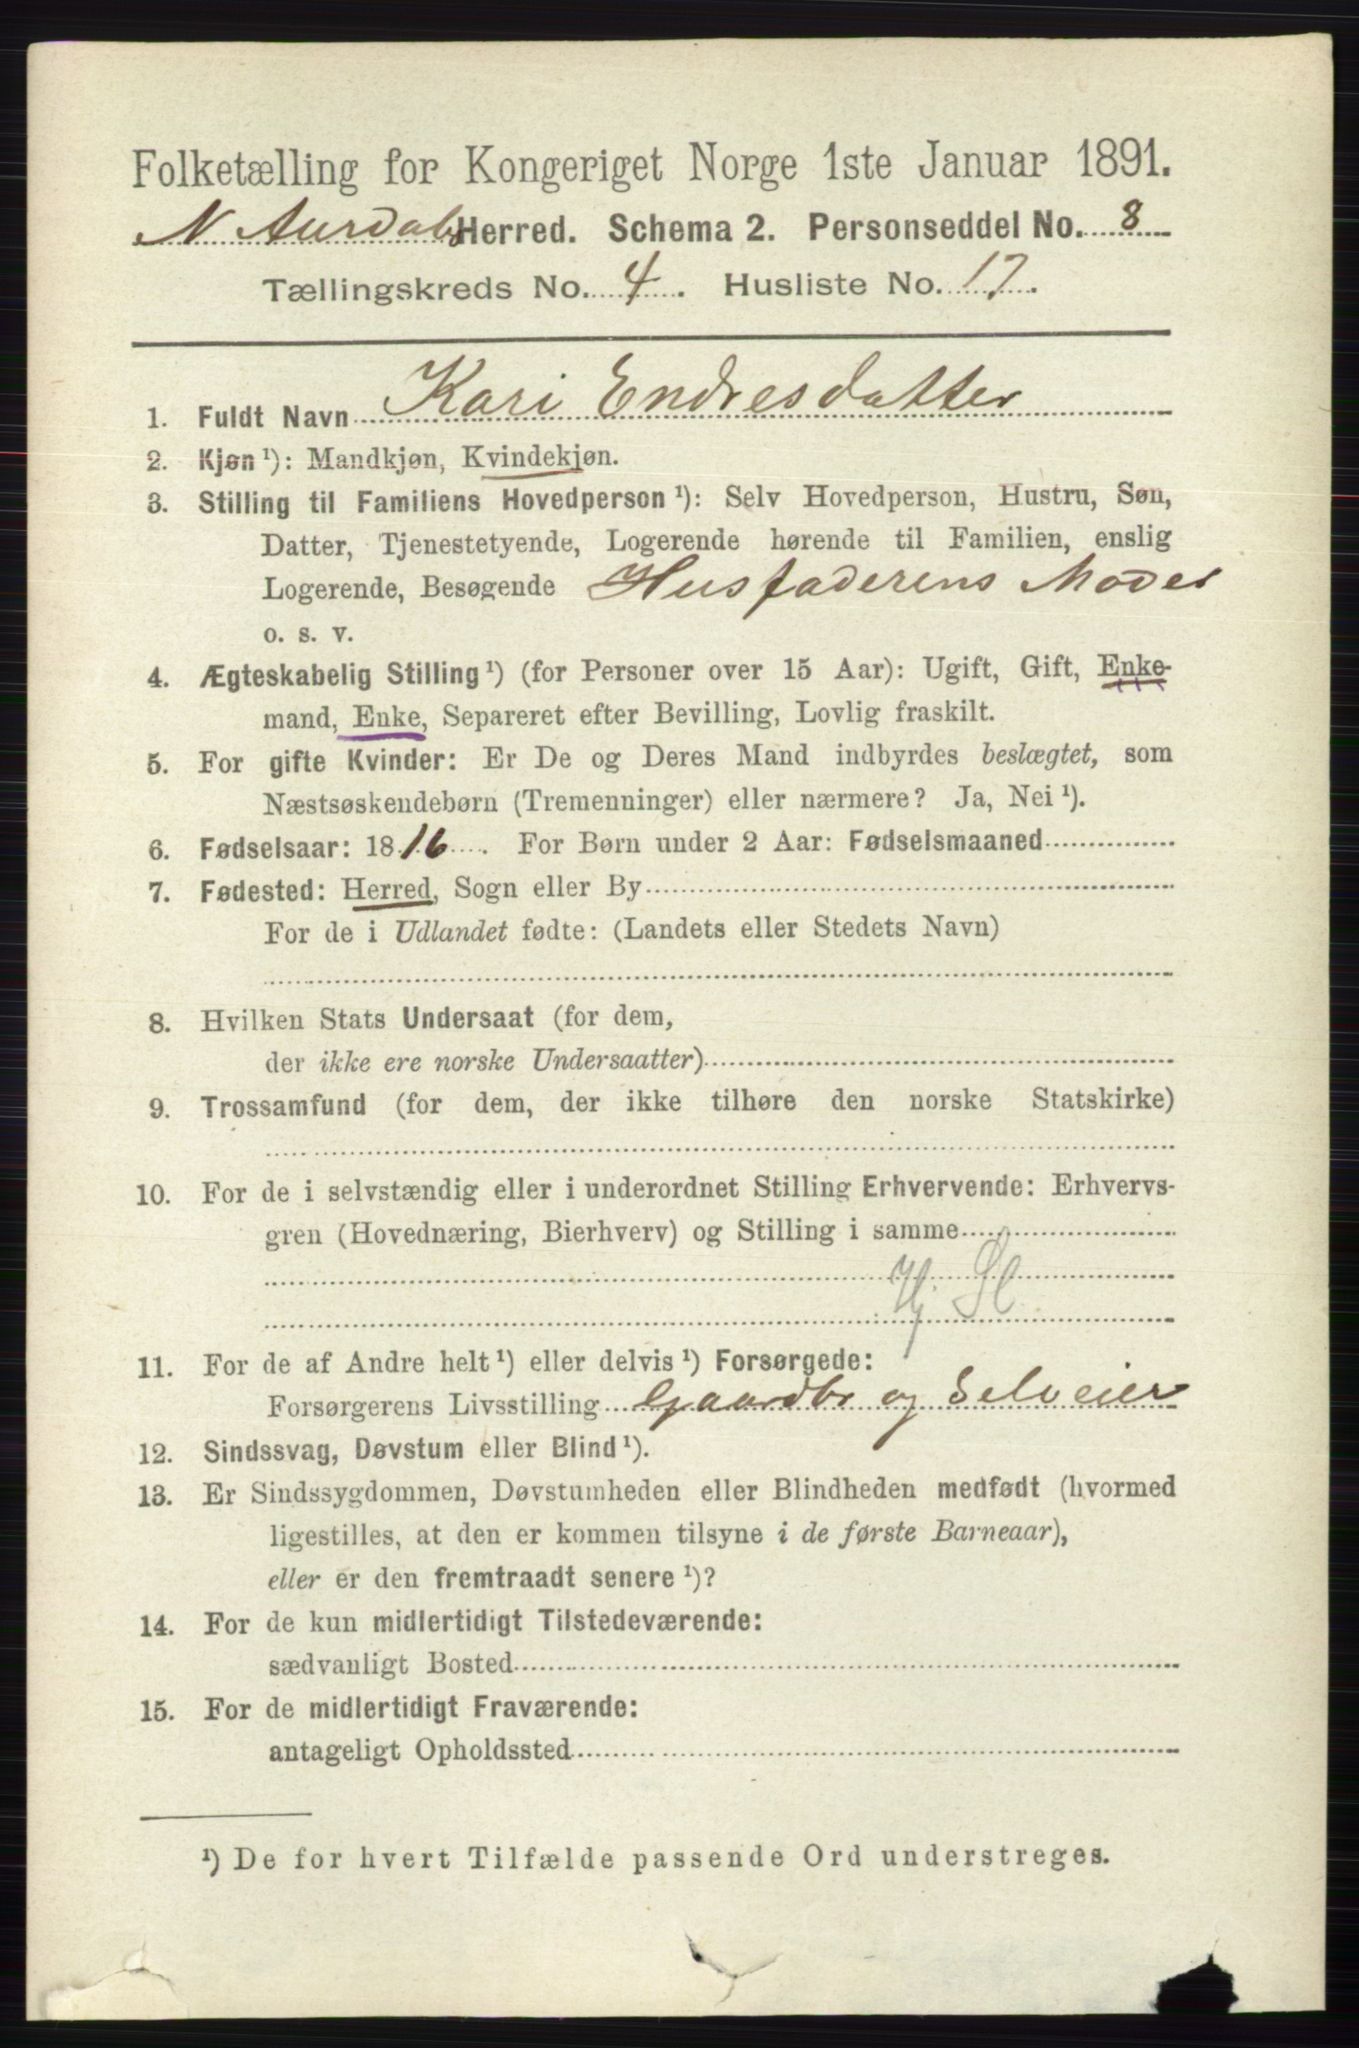 Folketælling for Kongeriget Norge 1ste Januar 1891.
N Aurdals Herred. Schema 2. Personseddel No. 8
Tællingskreds No. 4. Husliste No. 17.
1. Fuldt Navn Kari Endresdatter
2. Kjøn ¹): Mandkjøn, Kvindekjøn.
3. Stilling til Familiens Hovedperson ¹): Selv Hovedperson, Hustru, Søn,
Datter, Tjenestetyende, Logerende hørende til Familien, enslig
Logerende, Besøgende Husfaderens Moder
o. s. v.
4. Ægteskabelig Stilling ¹) (for Personer over 15 Aar): Ugift, Gift, Enke-
mand, Enke, Separeret efter Bevilling, Lovlig fraskilt.
5. For gifte Kvinder: Er De og Deres Mand indbyrdes beslægtet, som
Næstsøskendebørn (Tremenninger) eller nærmere? Ja, Nei ¹).
6. Fødselsaar: 1816. For Børn under 2 Aar: Fødselsmaaned
7. Fødested: Herred, Sogn eller By
For de i Udlandet fødte: (Landets eller Stedets Navn)
8. Hvilken Stats Undersaat (for dem,
der ikke ere norske Undersaatter)
9. Trossamfund (for dem, der ikke tilhøre den norske Statskirke)
10. For de i selvstændig eller i underordnet Stilling Erhvervende: Erhvervs-
gren (Hovednæring, Bierhverv) og Stilling i samme
Hj Sl
11. For de af Andre helt ¹) eller delvis ¹) Forsørgede:
Forsørgerens Livsstilling Gaardbr og Selveier
12. Sindssvag, Døvstum eller Blind ¹).
13. Er Sindssygdommen, Døvstumheden eller Blindheden medfødt (hvormed
ligestilles, at den er kommen tilsyne i de første Barneaar),
eller er den fremtraadt senere ¹)?
14. For de kun midlertidigt Tilstedeværende:
sædvanligt Bosted
15. For de midlertidigt Fraværende:
antageligt Opholdssted
¹) De for hvert Tilfælde passende Ord understreges.